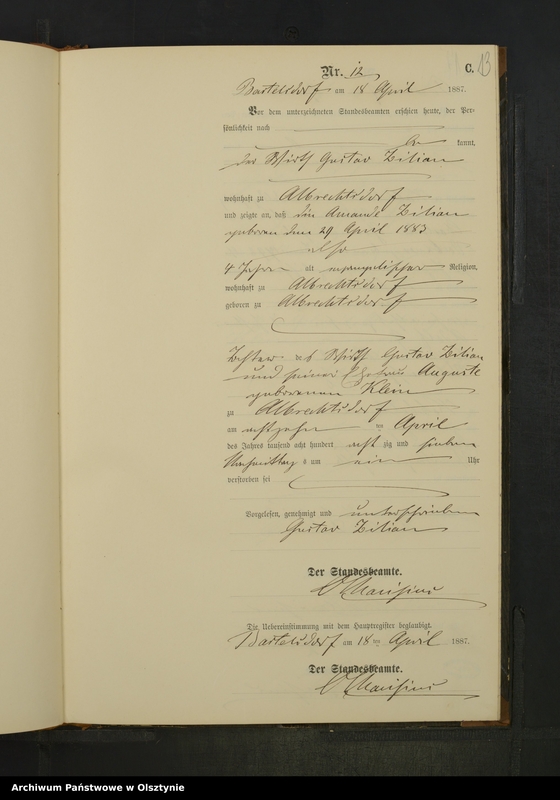 Nr. 12 C. 13
Bartelsdorf am 18 April 1887.
Vor dem unterzeichneten Standesbeamten erschien heute, der Per-
sönlichkeit nach
be kannt,
der Wirth Gustav Zilian
wohnhaft zu Albrechtsdorf
und zeigte an, daß die Amande Zilian
geboren den 29 April 1883
also
4 Jahre alt evangelischer Religion,
wohnhaft zu Albrechtsdorf
geboren zu Albrechtsdorf
Tochter des Wirth Gustav Zilian
und seiner Ehefrau Auguste
geborenen Klein
zu Albrechtsdorf
am achtzehn ten April
des Jahres tausend acht hundert acht zig und sieben
Vormittag s um ein Uhr
verstorben sei
Vorgelesen, genehmigt und unterschrieben
Gustav Zilian
Der Standesbeamte.
Die Uebereinstimmung mit dem Hauptregister beglaubigt.
Bartelsdorf am 18 ten April 1887.
Der Standesbeamte.
Archiwum Państwowe w Olsztynie